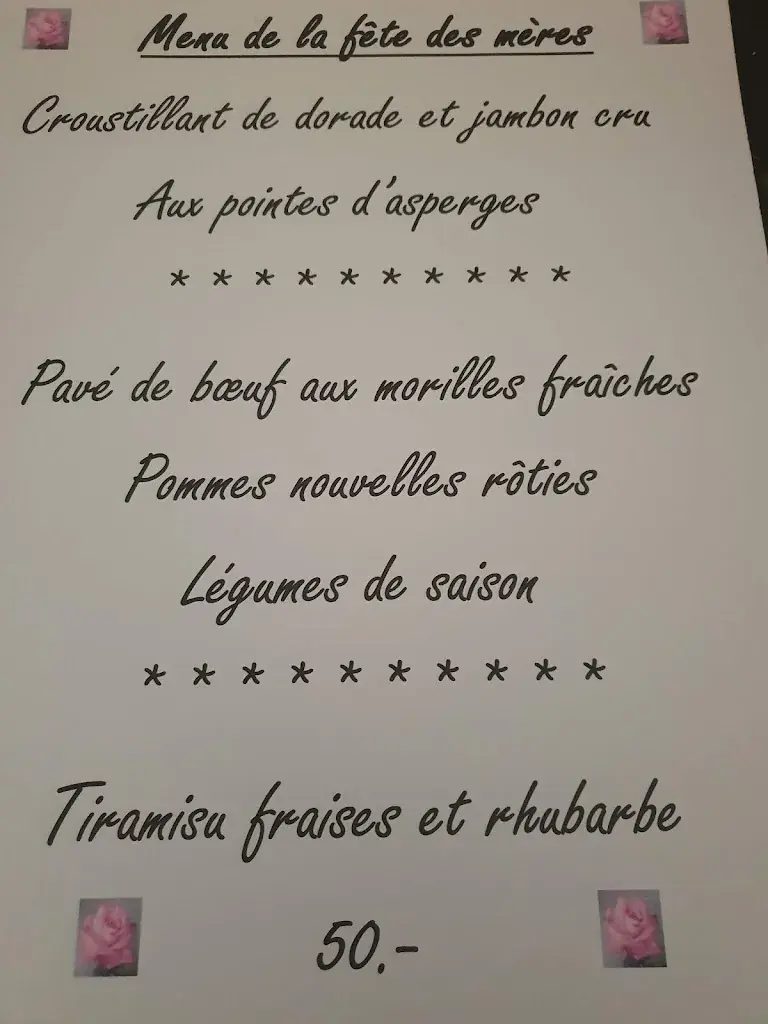 Menu de la fête des mères
Croustillant de dorade et jambon cru
Aux pointes d'asperges
* * * * * * * * * *
Pavé de bœuf aux morilles fraîches
Pommes nouvelles rôties
Légumes de saison
* * * * * * * * * *
Tiramisu fraises et rhubarbe
50.-